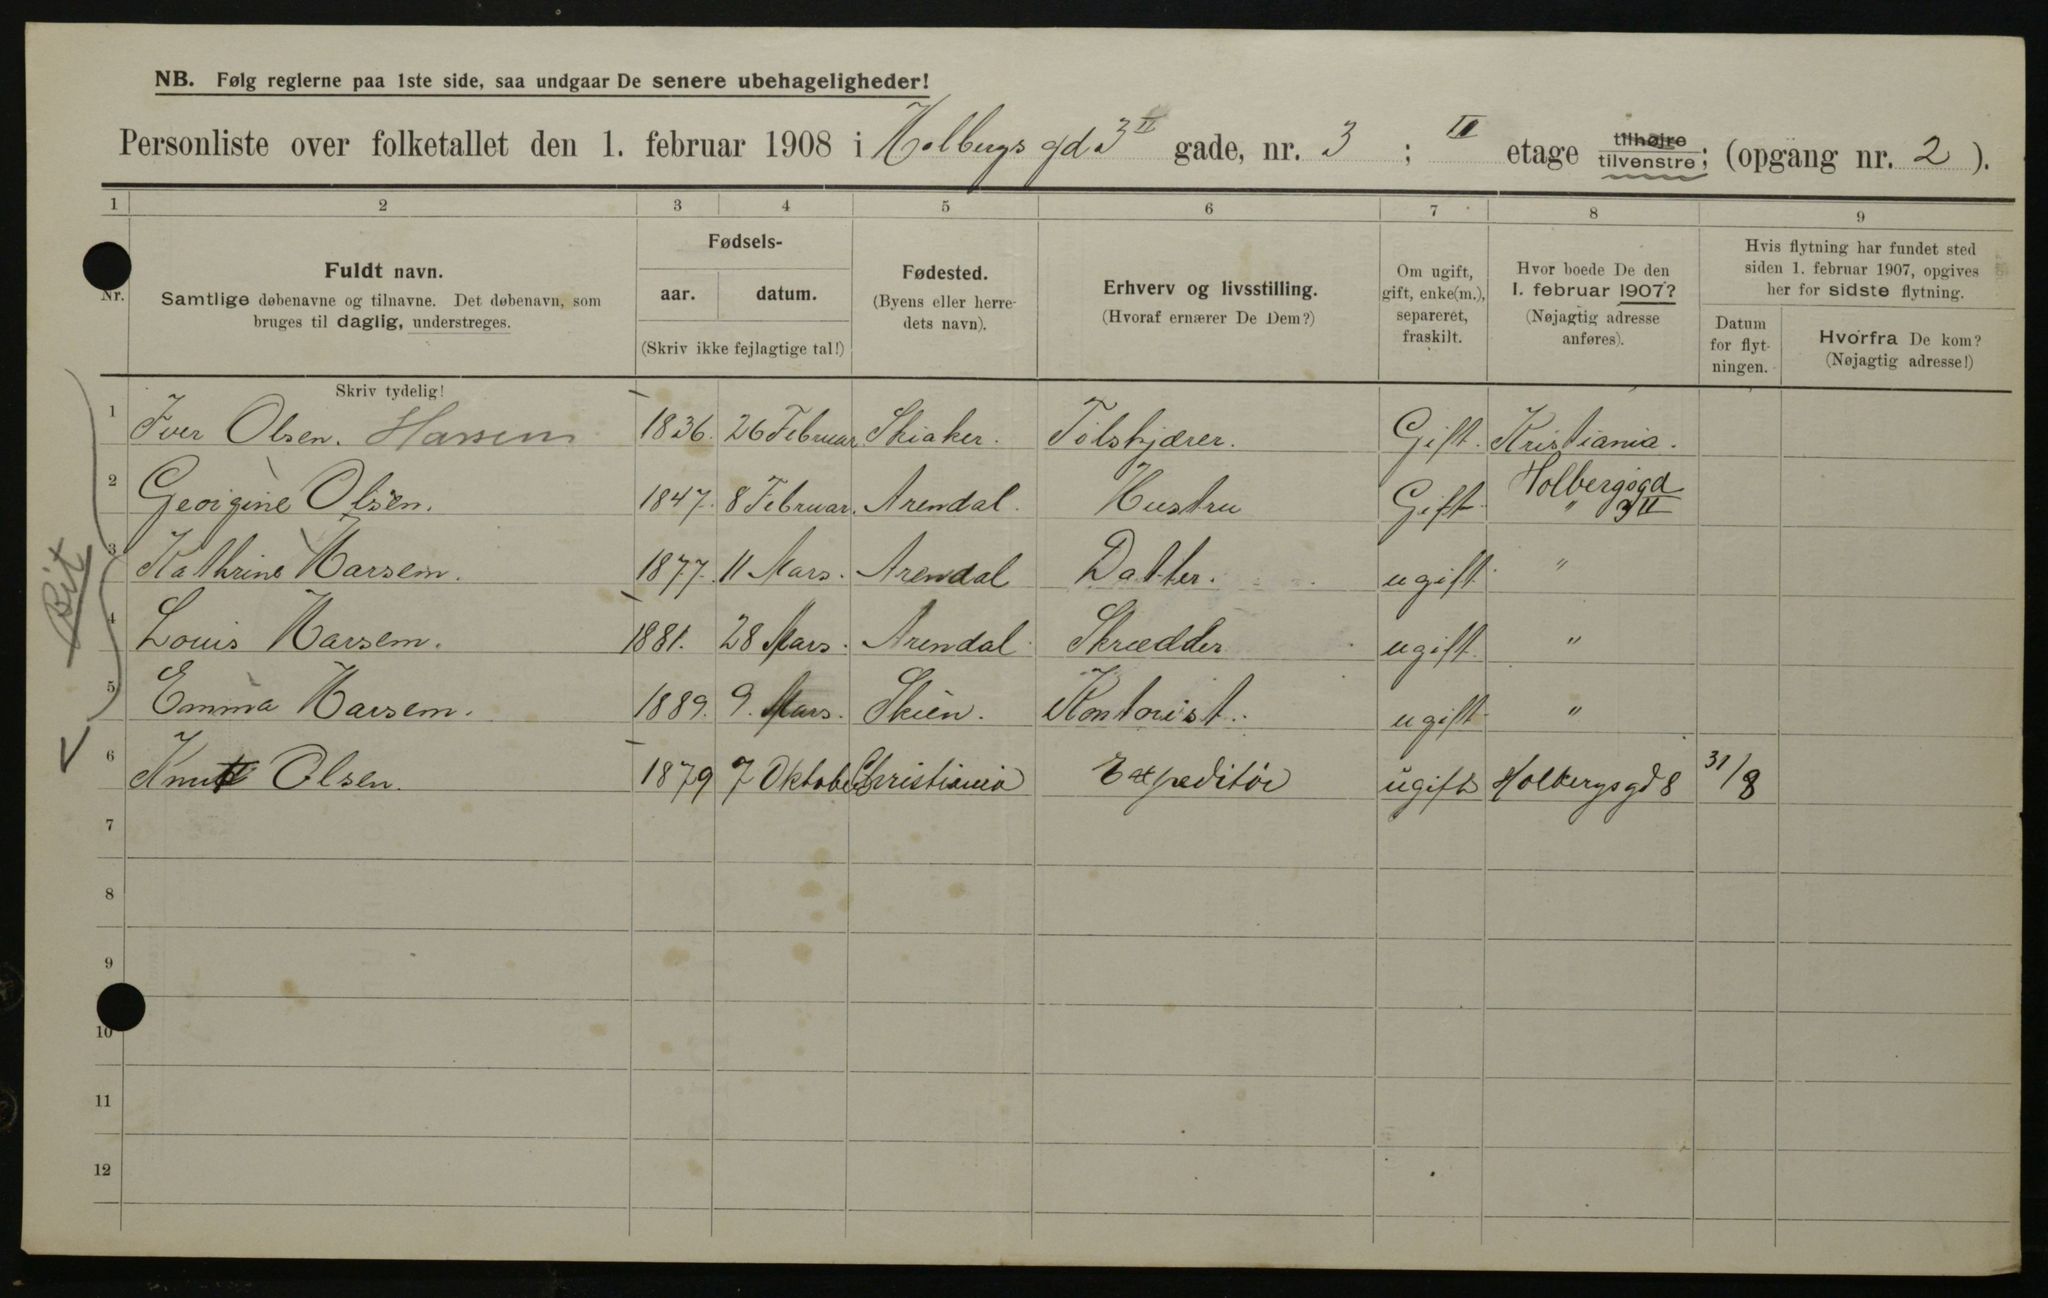 NB. Følg reglerne paa 1ste side, saa undgaar De senere ubehageligheder!
Personliste over folketallet den 1. februar 1908 i Holbergs gd 3 II gade, nr. 3 ; II etage tilhøjre tilvenstre; (opgang nr. 2 ).
1 2 3 4 5 6 7 8 9
Nr. Fuldt navn. Samtlige døbenavne og tilnavne. Det døbenavn, som bruges til daglig, understreges.
Fødsels- aar. datum. (Skriv ikke fejlagtige tal!)
Fødested. (Byens eller herredets navn).
Erhverv og livsstilling. (Hvoraf ernærer De Dem?)
Om ugift, gift, enke(m.), separeret, fraskilt.
Hvor boede De den 1. februar 1907? (Nøjagtig adresse anføres).
Hvis flytning har fundet sted siden 1. februar 1907, opgives her for sidste flytning.
Datum for flytningen.
Hvorfra De kom? (Nøjagtig adresse!)
Skriv tydelig!
1 Iver Olsen. Harsem 1836. 26 Februar Skiaker. Tolskjærer. Gift. Kristiania.
2 Georgine Olsen. 1847. 8 Februar. Arendal. Hustru Gift. Holbergsgd " 3 II
3 Kathrine Harsem. 1877. 11 Mars. Arendal Datter. ugift. "
4 Louis Harsem. 1881. 28 Mars. Arendal Skrædder ugift. "
5 Emma Harsem. 1889. 9. Mars. Skien. Kontorist. ugift. "
6 Knut Olsen. 1879 7 Oktober Christiania Expeditør ugift Holbergsgd 8 31/8
7
8
9
10
11
12